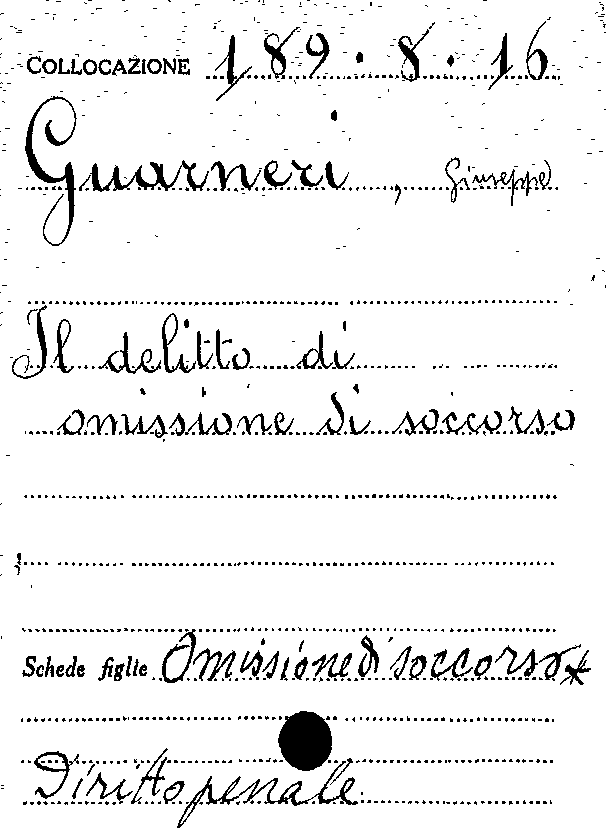 COLLOCAZIONE 189.8.16
Guarneri, Giuseppe
Il delitto di
omissione di soccorso
Schede figlie Omissione di soccorso*
Diritto penale